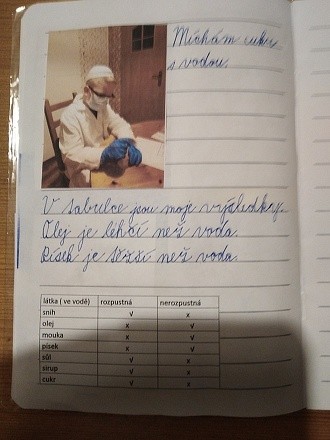 Míchám cukr
s vodou.
V tabulce jsou moje výsledky.
Olej je lehčí než voda.
Písek je těžší než voda.
látka ( ve vodě) rozpustná nerozpustná
sníh √ x
olej x √
mouka x √
písek x √
sůl √ x
sirup √ x
cukr √ x